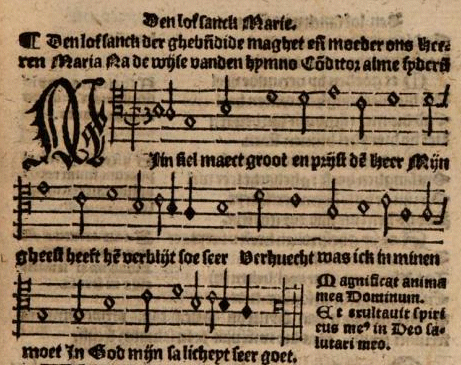 Den lofsanck Marie.
¶ Den lofsanck der ghebñdide maghet eñ moeder ons Hee-
ren Maria Na de wijse vanden hymno Cōditoz alme syderū
Mijn siel maect groot en prijst dē heer Mijn
gheest heeft hē verblijt soe seer Verhuecht was ick in minen
moet In God mijn salicheyt seer goet.
Magnificat anima
mea Dominum.
Et exultavit spiri
tus meꝰ in Deo sa-
lutari meo.